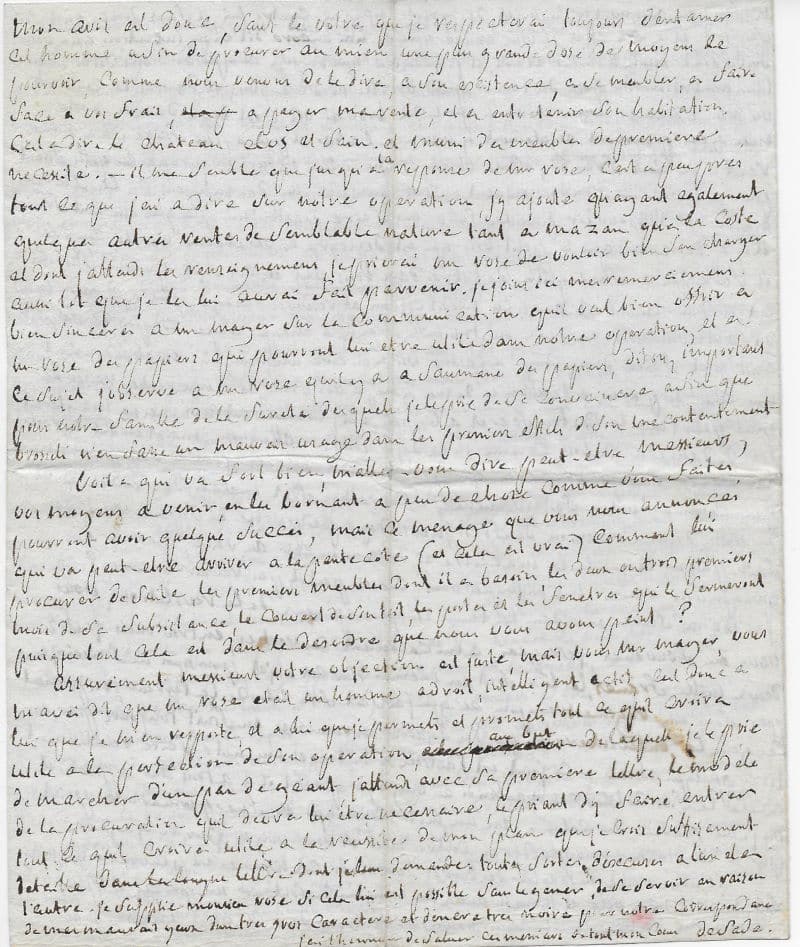 mon avis est donc, sauf le votre que je respecterai toujours d'entamer
cet homme afin de procurer au mien une plus grande dose de moyens de
pourvoir, comme nous venons de le dire, a son existence, a se meubler, a faire
face a vos frais, a payer ma rente, et a entretenir son habitation.
C'est a dire le chateau clos et sain. et muni des meubles de premiere
necessité. — il me semble que jusqu'a la reponse de mr rose, c'est a peu pres
tout ce que j'ai a dire sur notre operation j'y ajoute qu'ayant egalement
quelques autres rentes de semblable nature tant a mazan qu'a la Coste
et dont j'attends les renseignemens je prierai mr rose de vouloir bien s'en charger
aussitot que je les lui aurai fait parvenir. je joins ici mes remerciemens
bien sinceres a mr mayer sur la Communication qu'il veut bien offrir a
mr rose des papiers qui pourront lui etre utile dans notre operation, et a
ce sujet j'observe a mr rose qu'il y a a Saumane des papiers, dit on, importants
pour notre famille de la sureté desquels je le prie de se convaincre, afin que
brosseli n'en fasse un mauvais usage dans les premiers effets de son mecontentement
Voila qui va fort bien, m'allez-vous dire peut-etre messieurs,
vos moyens a venir, en les bornant a peu de chose comme vous faites,
pourront avoir quelque succès, mais ce menage que vous nous annoncés,
qui va peut-etre arriver a la pentecote (et cela est vrai) comment lui
procurer de suite les premiers meubles dont il a besoin, les deux ou trois premiers
mois de sa subsistance le couvert de son toit, les portes et les fenetres qui le fermeront
puisque tout cela est dans le desordre que nous vous avons peint ?
assurement messieurs votre objection est juste, mais vous mr mayer, vous
m'avez dit que mr rose etait un homme adroit, intelligent actif c'est donc a
lui que je m'en rapporte et a lui que je permets et promets tout ce qu'il croira
utile a la perfection de son operation, au but de laquelle je le prie
de marcher d'un pas de géant j'attends avec sa premiere lettre, le modele
de la procuration qui devra lui être necessaire, le priant d'y faire entrer
tout ce qu'il croira utile a la reussite de mon plan que je crois suffisament
detaillé dans la longue lettre dont je leur demande toutes sortes d'excuses a l'un et a
l'autre. je supplie monsieur rose si cela lui est possible sans le gener, de se servir en raison
de mes mauvais yeux d'un tres gros caractere et d'encre tres noire pour notre correspondance
j'ai l'honneur de saluer ces messieurs de tout mon Cœur de Sade.